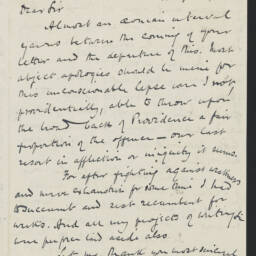 Dear Sir
Almost an æonian interval
yawns between the coming of your
letter and the departure of this. Most
abject apologies should be mine for
this unconscionable lapse were I not,
providentially, able to throw upon
the broad back of Providence a fair
proportion of the offence — our last
resort in affliction or iniquity it seems.
For after fighting against weakness
and nerve exhaustion for some time I had
to succumb and rest recumbent for
weeks. And all my projects of writing
were perforce laid aside also.
my thank you most sincerely